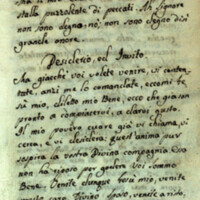 stalla puzzolente di peccati. Ah Signore
non sono degno, nò; non sono degno di si
grande onore.
Desiderio, ed Invito
Ma giacchè voi volete venire, vi conten-
tate, anzi me lo comandate, eccomi tut-
to mio, diletto mio Bene, ecco che già son
pronto a compiacervi, a darvi gusto.
Il mio povero cuore già vi chiama, vi
cerca, e vi desidera: quest'anima mia
sospira la vostra Divina compagnia
non ha riposo per godere Voi sommo
Bene. Venite dunque Gesù mio, venite
Divino Sposo, venite